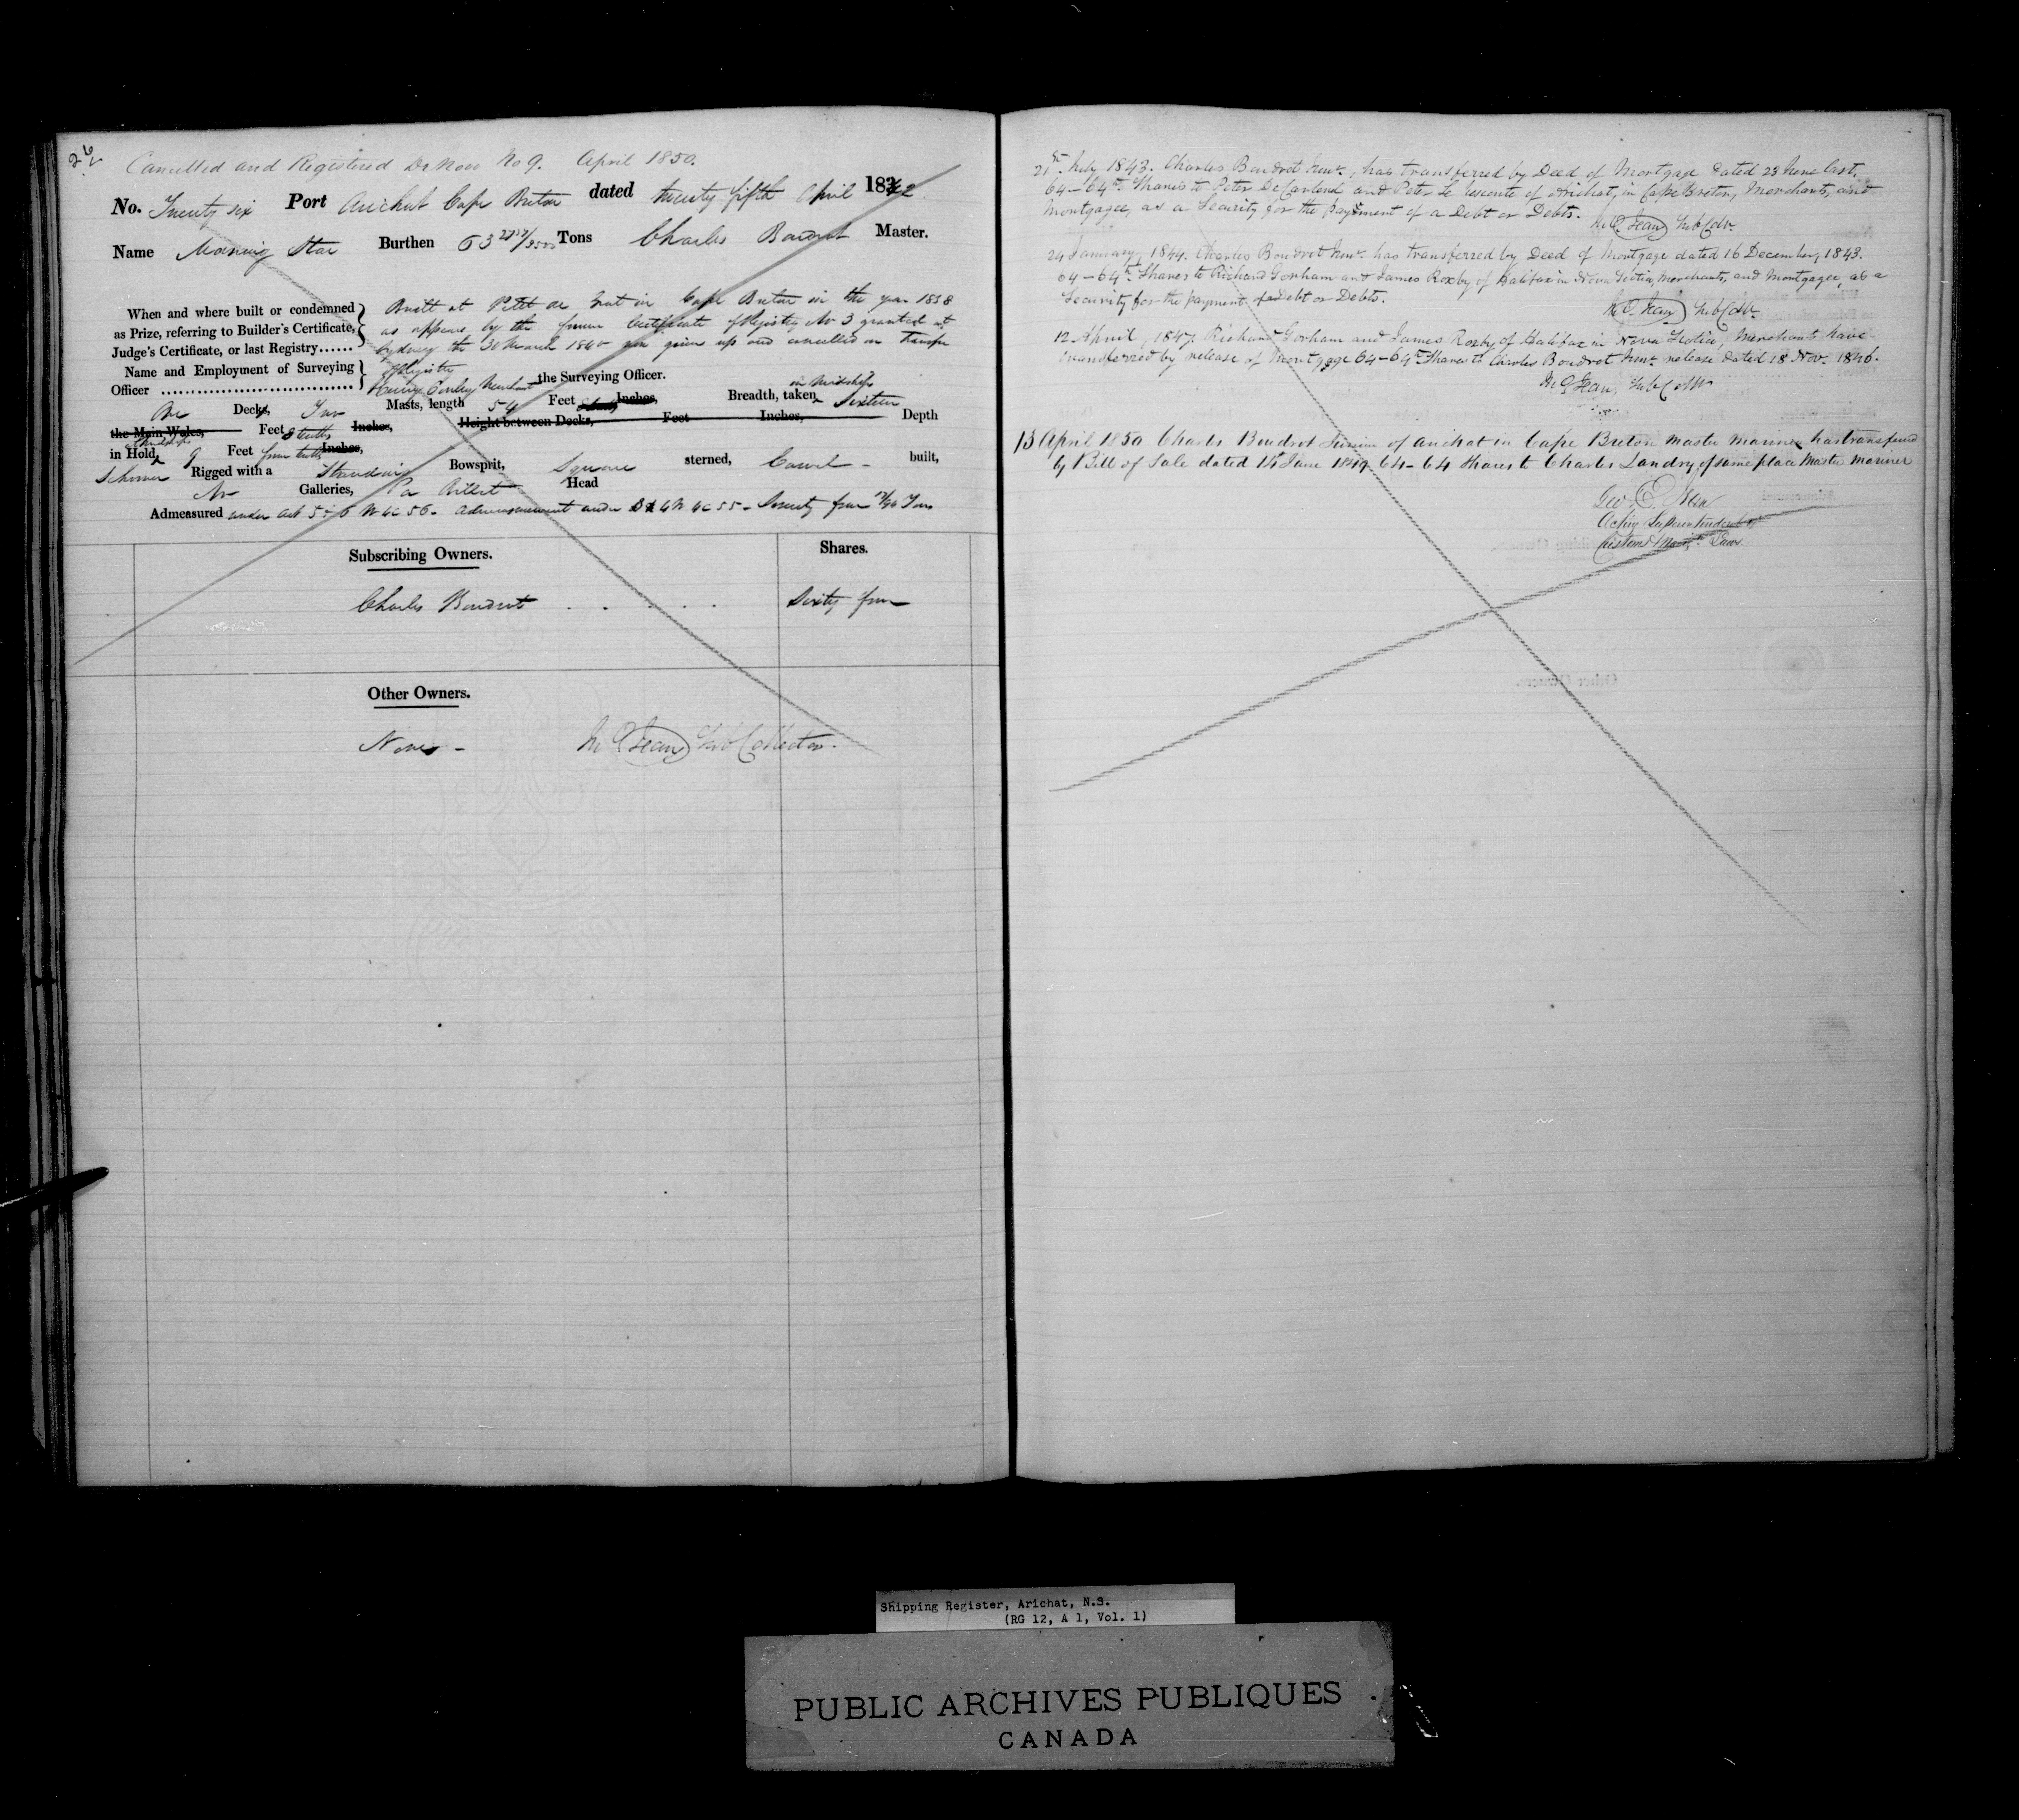 26
Cancelled and Registered De Novo No 9. April 1850.
No. Twenty six Port Arichat Cape Breton dated twenty fifth April 1842
Name Morning Star Burthen 63 Tons Charles Boudrot Master.
When and where built or condemned as Prize, referring to Builder's Certificate, Judge's Certificate, or last Registry......
Built at Petit de Grat in Cape Breton in the year 1838
as appears by the former Certificate of Registry No 3 granted at
Sydney the 30 March 1840 now given up and cancelled on Transfer
of Registry
Name and Employment of Surveying Officer
Henry Merchant the Surveying Officer.
One Decks, Two Masts, length 54 Feet Inches, Breadth, taken in Midships Sixteen
the Main Wales, Feet 3 tenths Inches, Height between Decks, Feet Inches, Depth
in Hold, Midships 9 Feet four tenths Inches,
Schooner Rigged with a Standing Bowsprit, Square sterned, Carvel - built,
No Galleries, Head
Admeasured under Act 5 & 6 W 4 C 56. Admeasurement under 3 & 4 W 4 C 55 - Seventy four Tons
Subscribing Owners. Shares.
Charles Boudrot . . . . . Sixty four
Other Owners.
None - Sub Collector.
21st July 1843. Charles Boudrot Junr., has transferred by Deed of Mortgage dated 23 June last,
64-64th Shares to Peter De Carteret and Peter Le Lesconte of Arichat, in Cape Breton, Merchants, and
Mortgagee, as a Security for the payment of a Debt or Debts.
Sub Collr.
24 January, 1844. Charles Boudrot Junr. has transferred by Deed of Mortgage dated 16 December, 1843.
64-64th Shares to Richard Gorham and James Roxby of Halifax in Nova Scotia, Merchants, and Mortgagee, as a
Security for the payment of a Debt or Debts.
Sub Collr.
12 April, 1847. Richard Gorham and James Roxby of Halifax in Nova Scotia, Merchants have
transferred by release of Mortgage 64-64th Shares to Charles Boudrot Junr. release dated 18 Nov. 1846.
Sub Collr
13 April 1850 Charles Boudrot Junior of Arichat in Cape Breton Master Mariner has transferred
by Bill of Sale dated 14 June 1849 64-64 Shares to Charles Landry of same place Master Mariner
Geo. E.
Acting Superintendent of
Customs & Navign. Laws
Shipping Register, Arichat, N.S.
(RG 12, A 1, Vol. 1)
PUBLIC ARCHIVES PUBLIQUES
CANADA